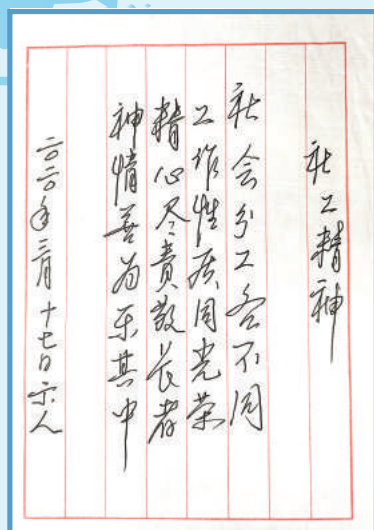 社工精神
社会分工各不同
工作性质同光荣
精心尽责敬长者
神情善为乐其中
二〇二〇年三月十七日